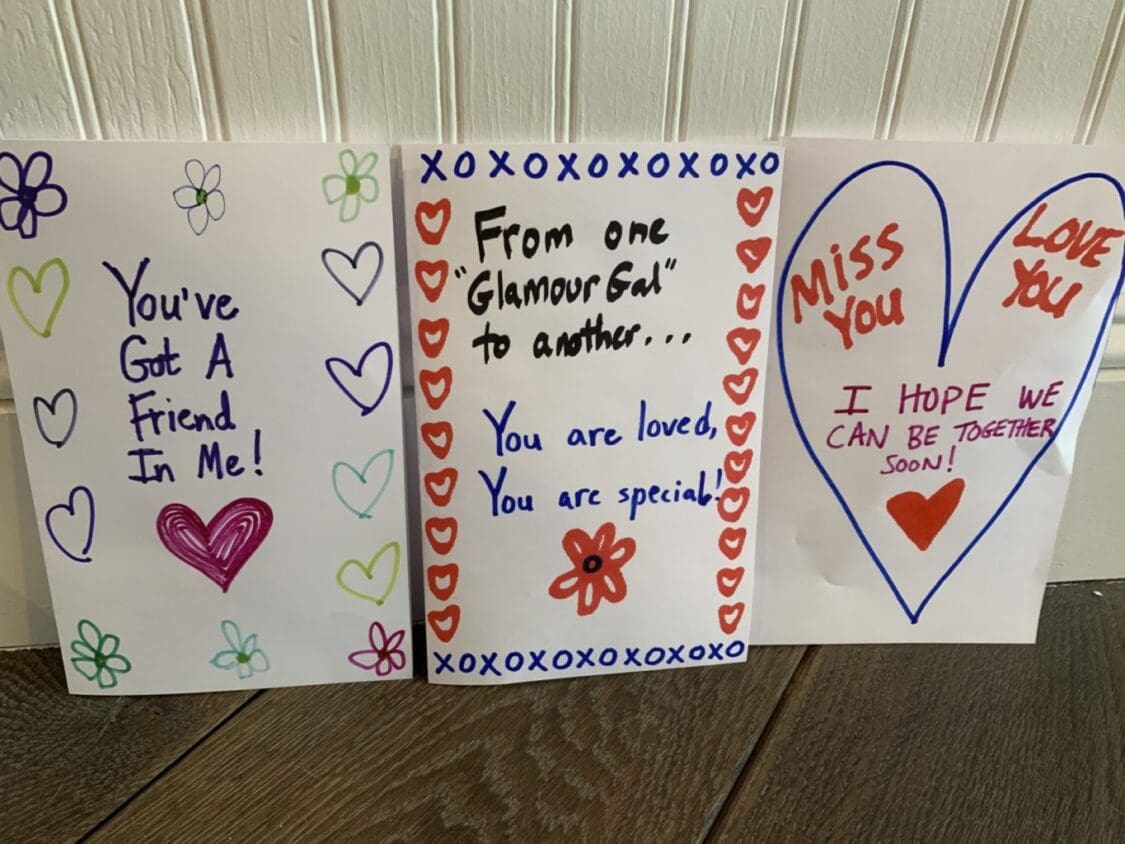 You've
Got A
Friend
In Me!
XOXOXOXOXOXO
From one
"Glamour Gal"
to another...
You are loved,
You are special!
XOXOXOXOXOXOXO
MISS
YOU
LOVE
YOU
I HOPE WE
CAN BE TOGETHER
SOON!